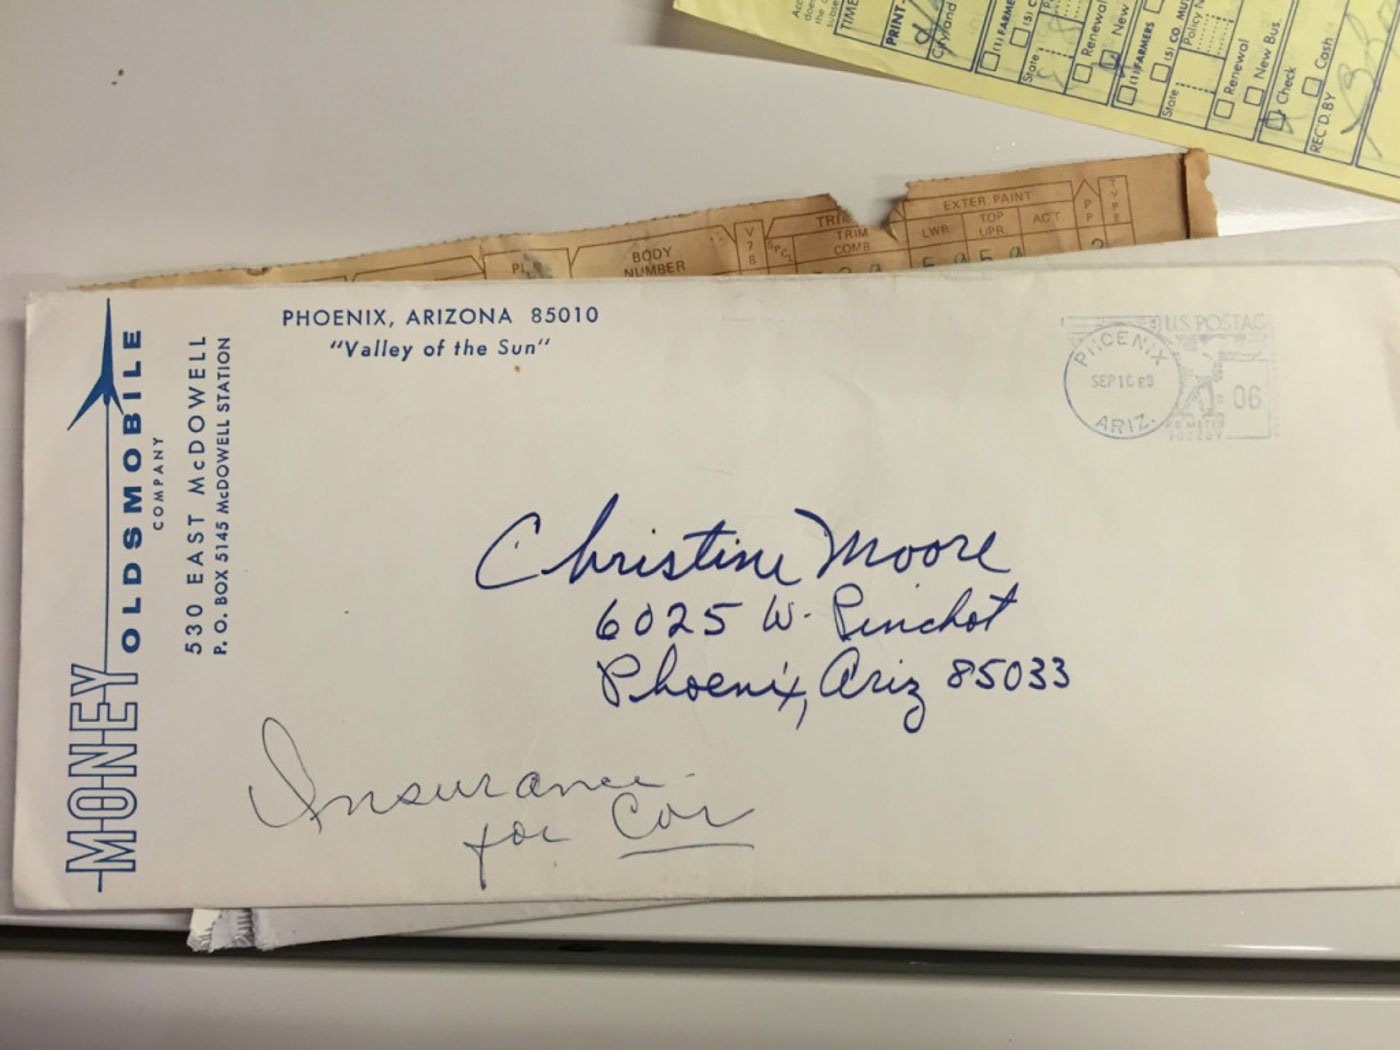 TIME
PRINT
City and
(1) FARME
State
Renewal
New
(1) FARMERS
(5) CO. MU
Policy N
State
Renewal
New Bus.
Check
Cash
REC'D. BY
BODY
NUMBER
V
7
8
TRIM
COMB.
EXTER. PAINT
LWR.
TOP
UPR.
ACT.
P
P
T
Y
P
E
MONEY
OLDSMOBILE
COMPANY
530 EAST McDOWELL
P. O. BOX 5145 McDOWELL STATION
PHOENIX, ARIZONA 85010
"Valley of the Sun"
PHOENIX
ARIZ.
U.S. POSTAG
06
Christine Moore
6025 W. Pinchot
Phoenix, Ariz 85033
Insurance
for Car